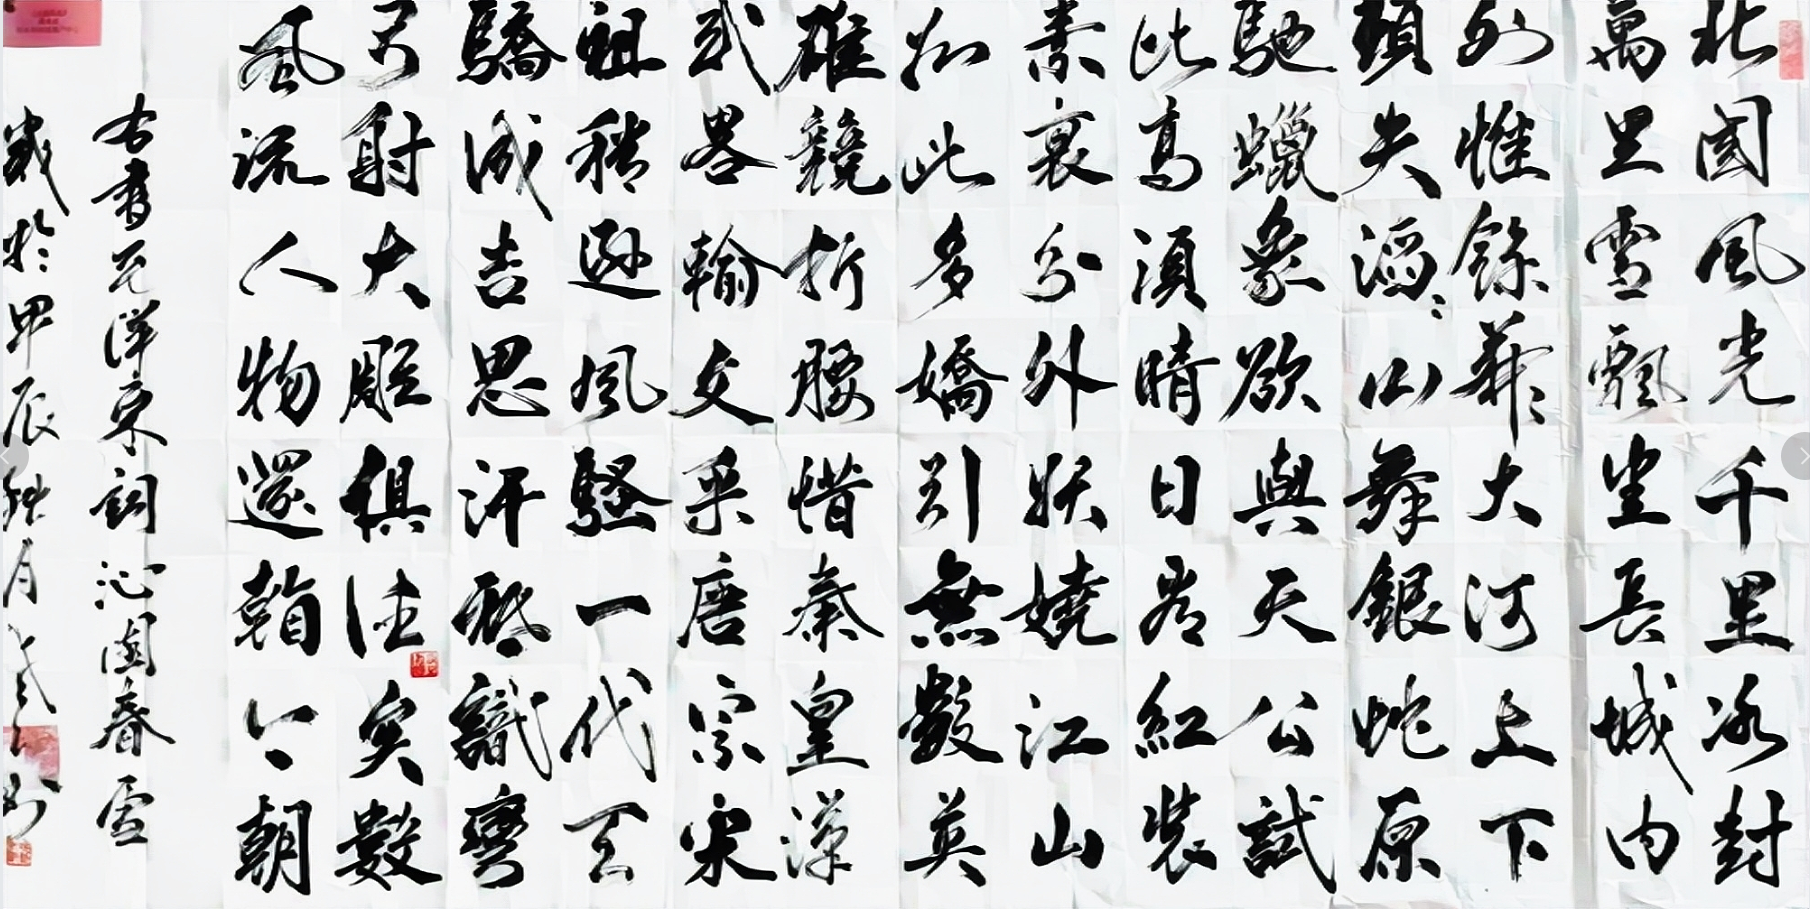 北國風光千里冰封
萬里雪飄望長城内
外惟餘莽〻大河上下
頓失滔〻山舞銀蛇原
馳蠟象欲與天公試
比高須晴日看紅裝
素裹分外妖嬈江山
如此多嬌引無數英
雄競折腰惜秦皇漢
武畧輸文采唐宗宋
祖稍遜風騷一代天
驕成吉思汗祗識彎
弓射大雕俱往矣數
風流人物還看今朝
右書毛澤東詞沁園春雪
歲於甲辰秋月